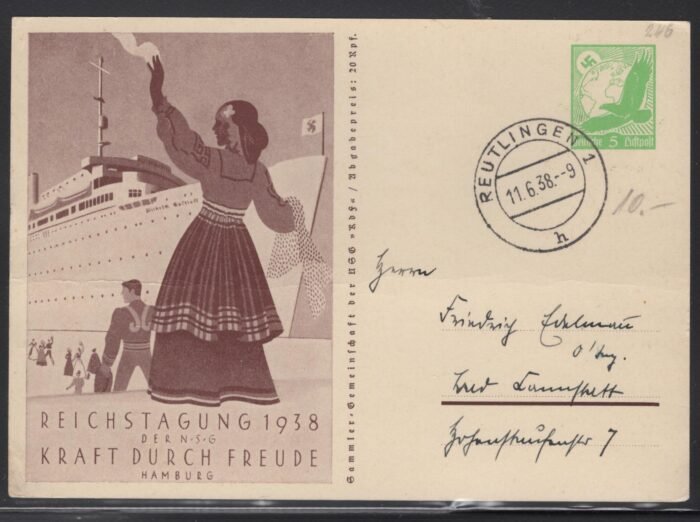 Wilhelm Gustloff
REICHSTAGUNG 1938
DER N·S·G
KRAFT DURCH FREUDE
HAMBURG
Sammler-Gemeinschaft der NSG »KdF« / Abgabepreis: 20 Rpf.
246
Deutsche 5 Luftpost
REUTLINGEN 1
11.6.38.--9
h
10.-
Herrn
Friedrich Edelmau
O'Ing.
Bad Cannstatt
Hohenstaufenstr 7